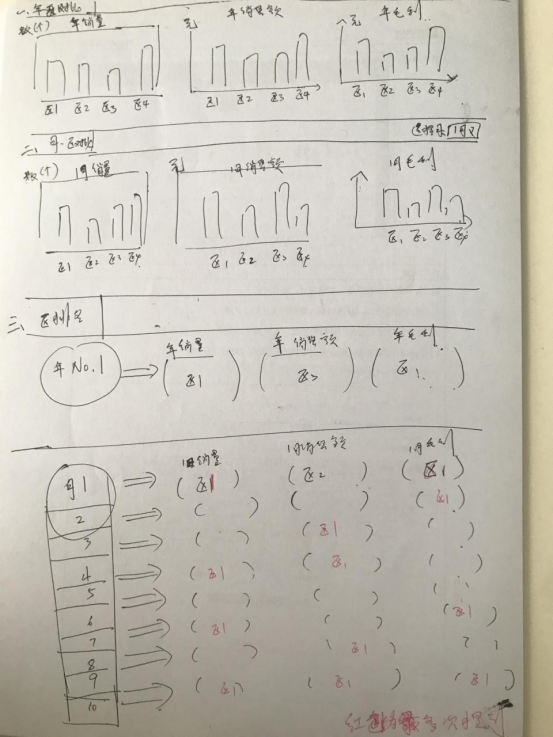 年销量 年销售额 年毛利
数(个) 元 元
区1 区2 区3 区4 区1 区2 区3 区4 区1 区2 区3 区4
二、月、区对比 选择月 1月
数(个) 1月销量 元 1月销售额 1月毛利
区1 区2 区3 区4 区1 区2 区3 区4 区1 区2 区3 区4
三、区排名
年销量 年销售额 年毛利
年No.1 (区1) (区3) (区1)
1月销量 1月销售额 1月毛利
月1 (区1) (区2) (区1)
2 ( ) ( ) (区1)
3 ( ) (区1) ( )
4 (区1) (区1) ( )
5 ( ) ( ) ( )
6 (区1)
7 (区1) ( )
8 ( ) (区1) ( )
9 (区1) (区1) (区1)
10
红